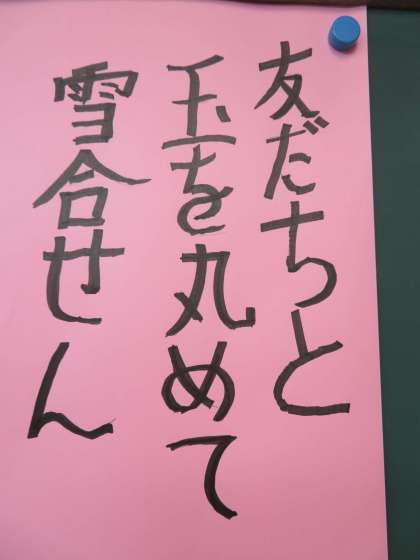 友だちと
玉を丸めて
雪合せん